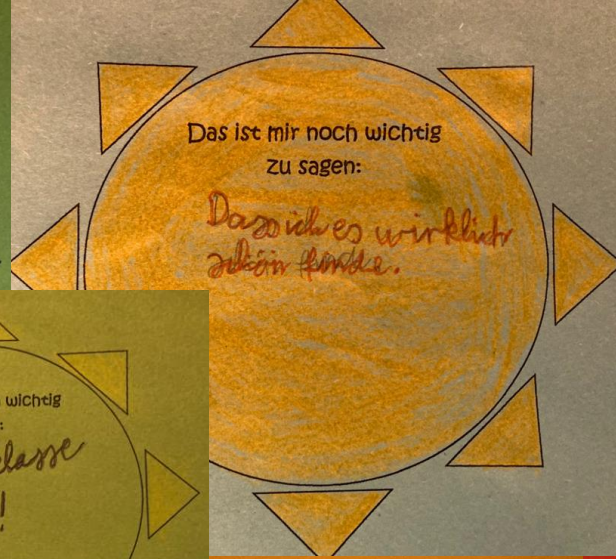 Das ist mir noch wichtig
zu sagen:
Dass ich es wirklich
schön finde.
wichtig
:
klasse
!